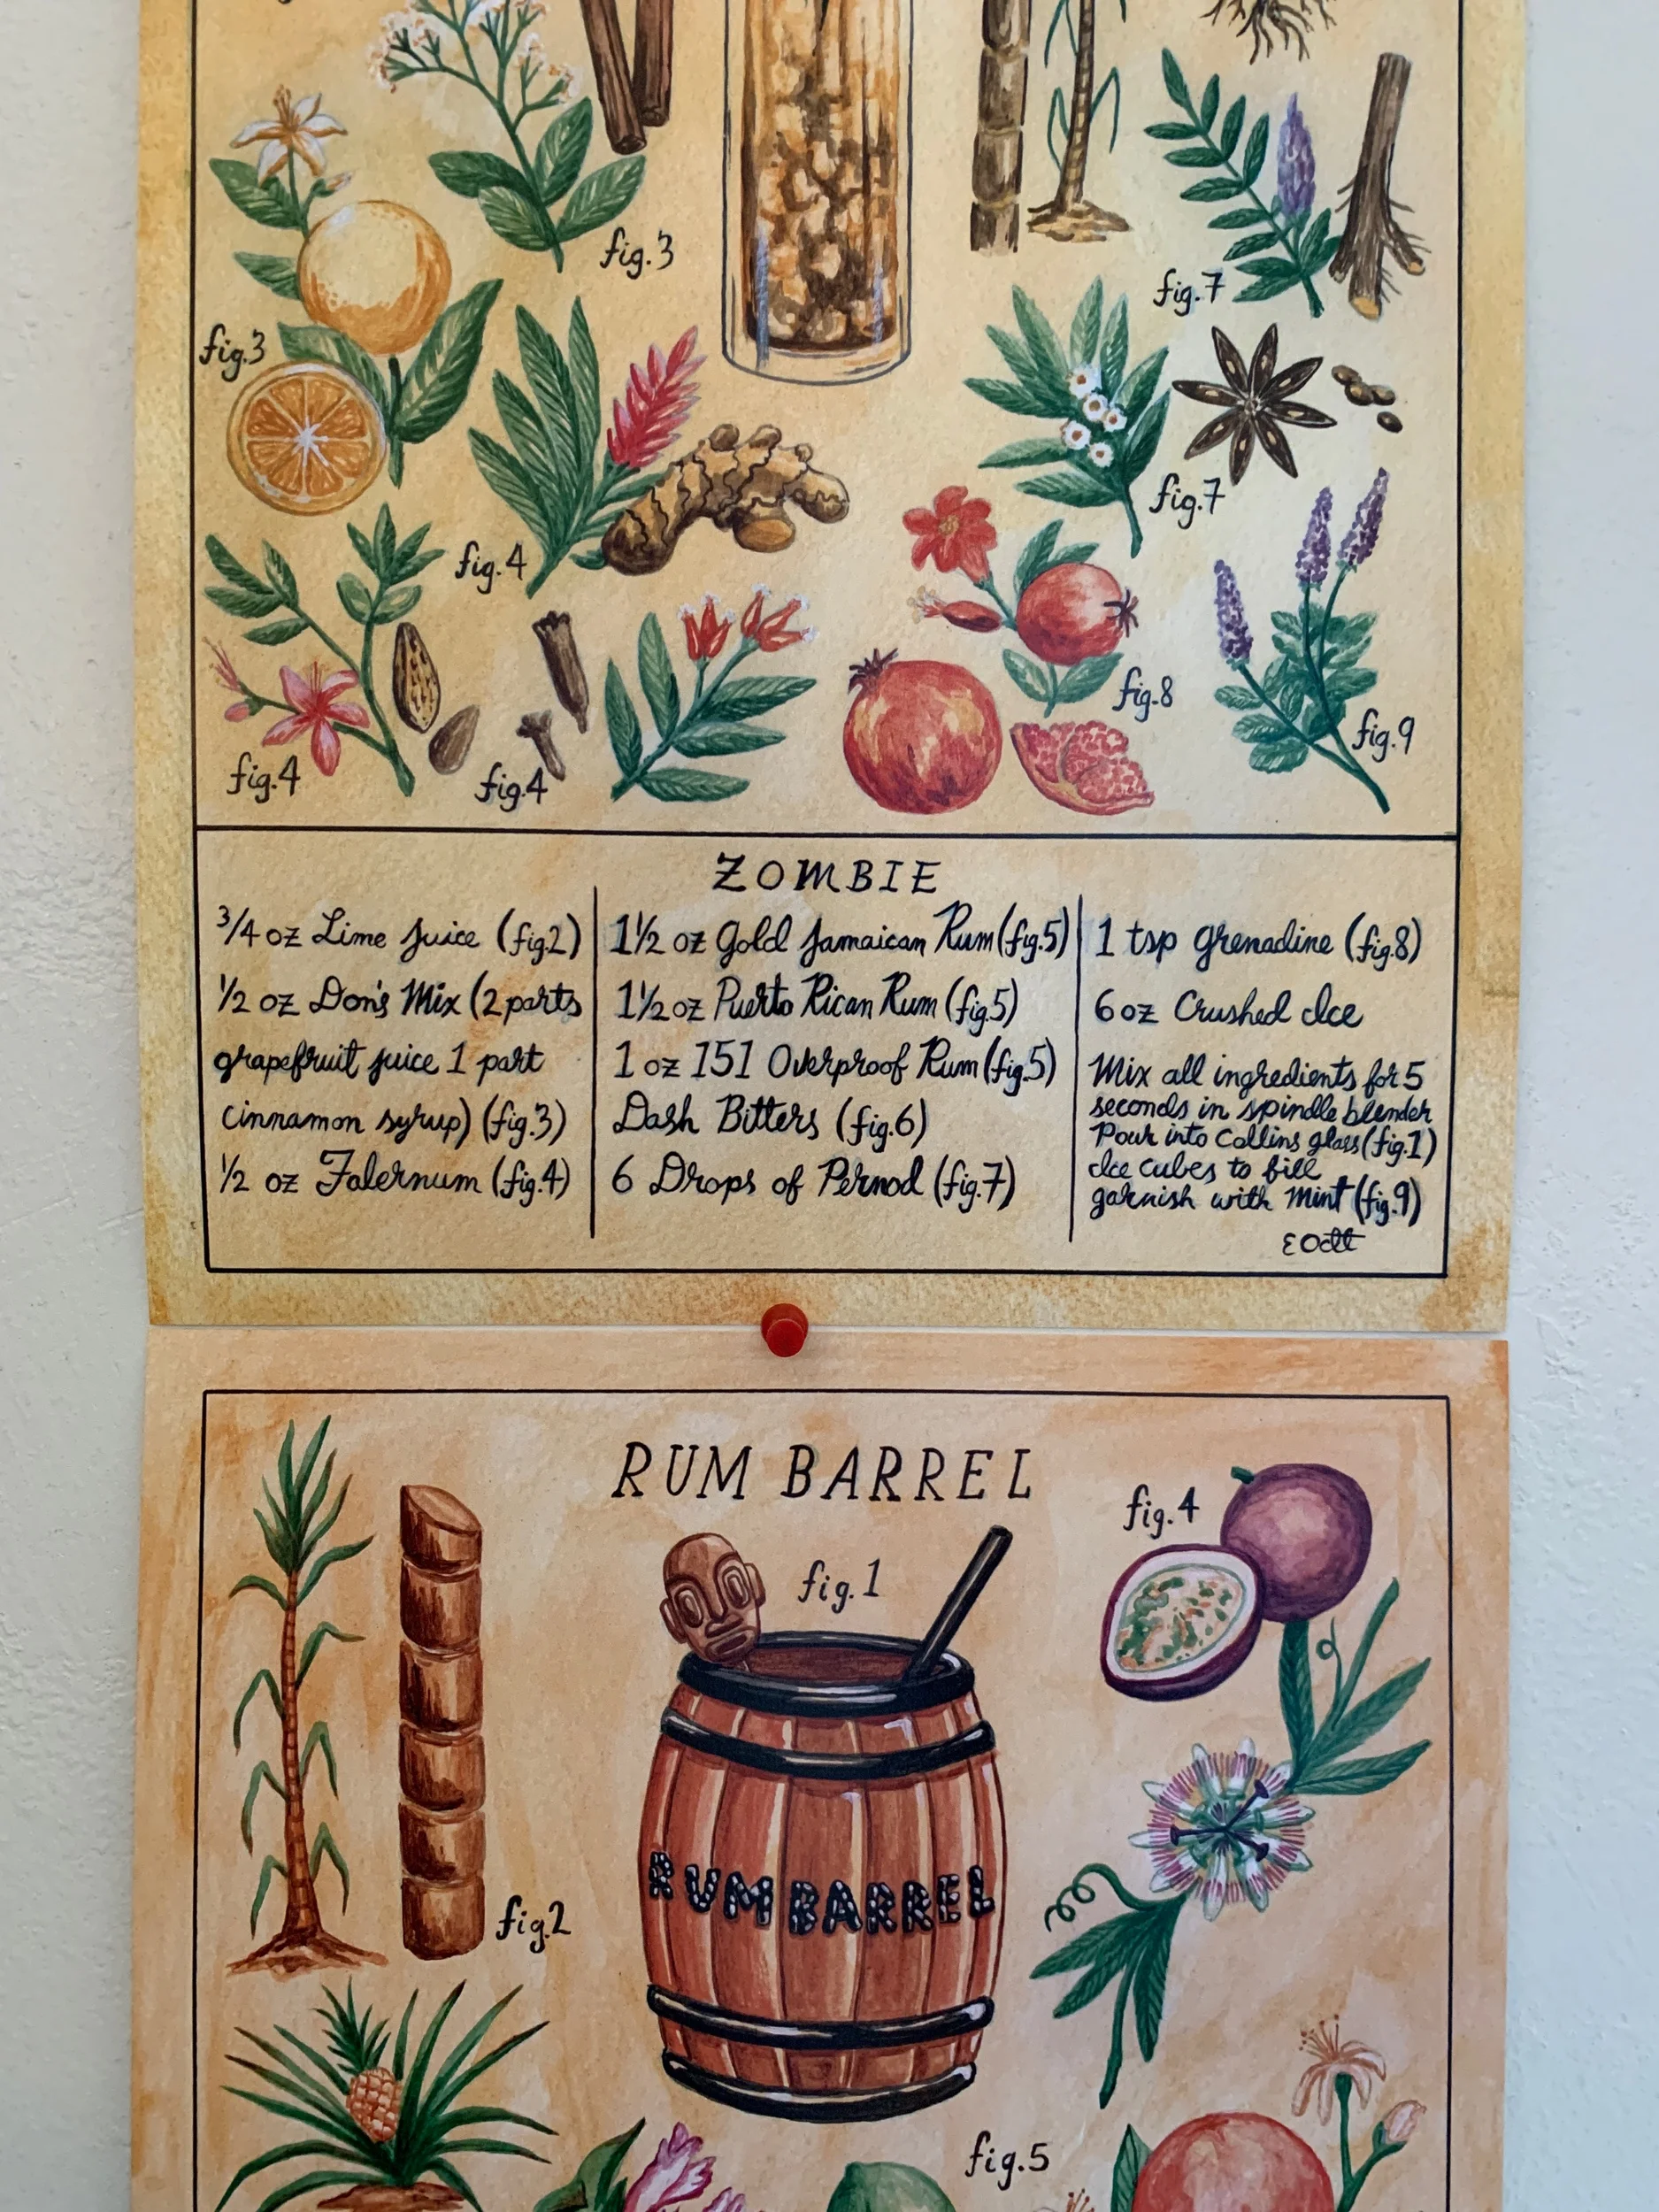 fig.3
fig.7
fig.3
fig.7
fig.4
fig.8
fig.9
fig.4
fig.4
ZOMBIE
3/4 oz Lime Juice (fig2)
1/2 oz Don's Mix (2 parts
grapefruit juice 1 part
cinnamon syrup) (fig.3)
1/2 oz Falernum (fig.4)
1 1/2 oz Gold Jamaican Rum (fig.5)
1 1/2 oz Puerto Rican Rum (fig.5)
1 oz 151 Overproof Rum (fig.5)
Dash Bitters (fig.6)
6 Drops of Pernod (fig.7)
1 tsp grenadine (fig.8)
6 oz Crushed Ice
Mix all ingredients for 5
seconds in spindle blender
Pour into Collins glass (fig.1)
Ice cubes to fill
garnish with Mint (fig.9)
RUM BARREL
fig.4
fig.1
RUM BARREL
fig.2
fig.5